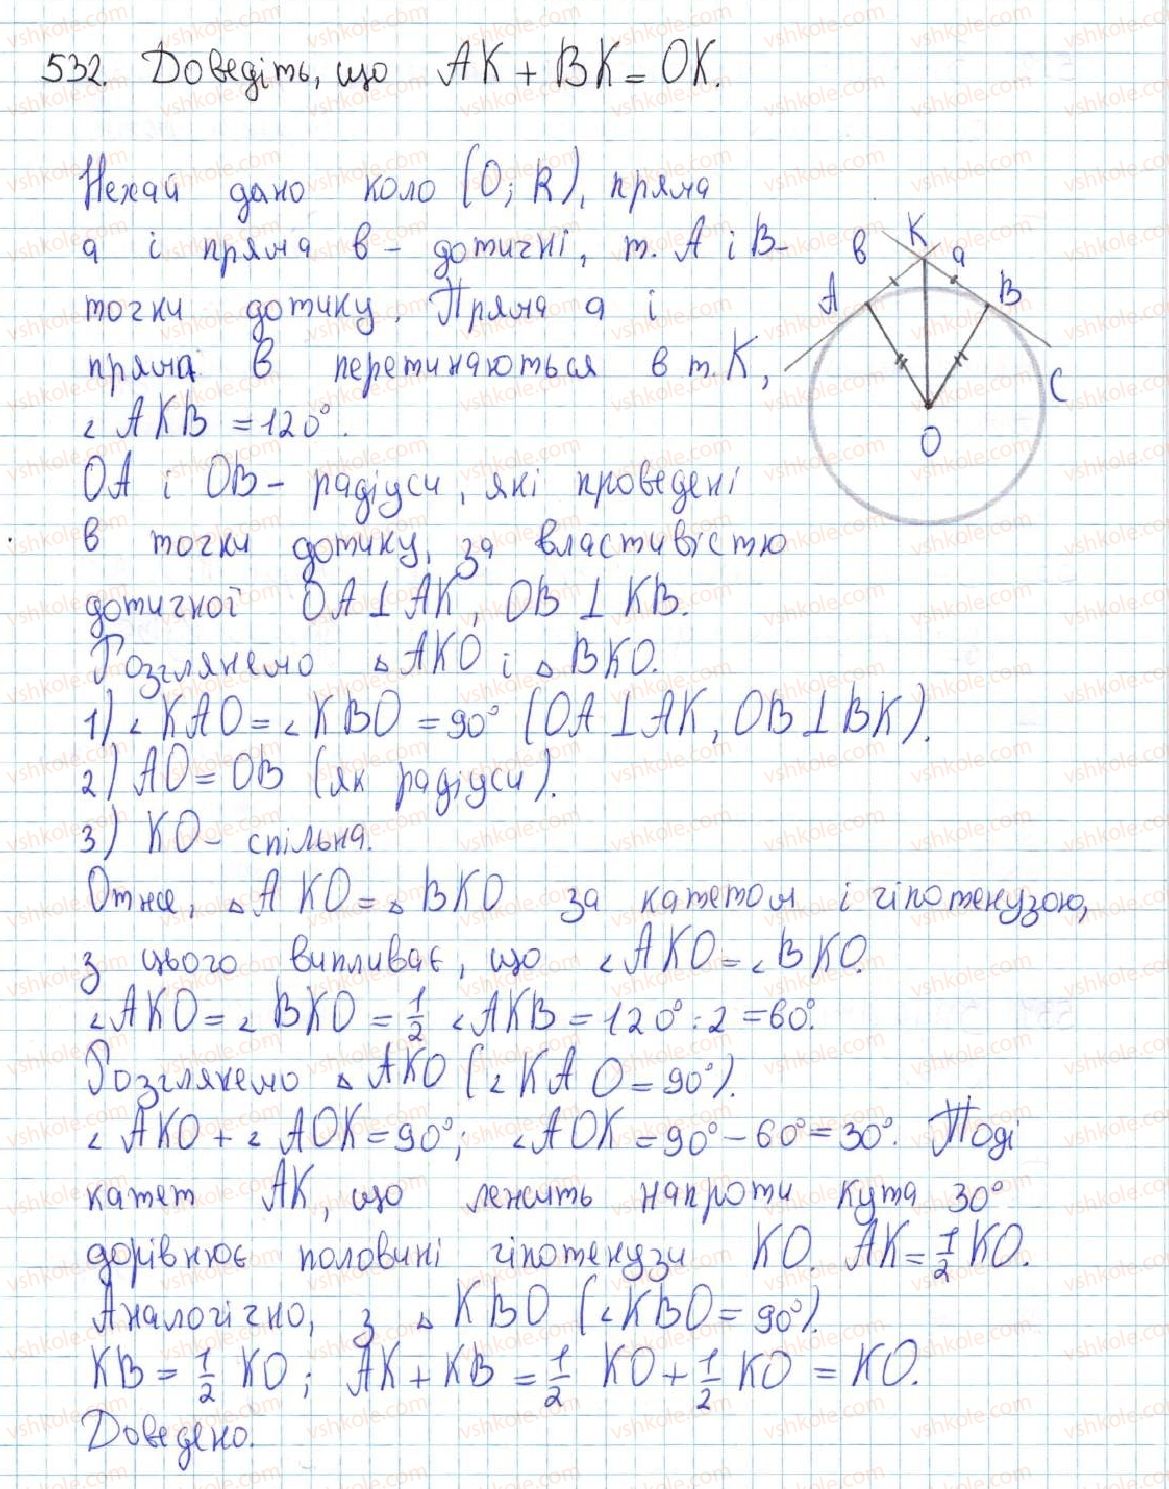 532. Доведіть, що AK + BK = OK.
Нехай дано коло (O; R), пряма
a і пряма в – дотичні, т. A і B –
точки дотику. Пряма a і
пряма в перетинаються в т. K,
∠AKB = 120°.
OA і OB – радіуси, які проведені
в точки дотику, за властивістю
дотичної OA ⊥ AK, OB ⊥ KB.
Розглянемо △AKO і △BKO.
1) ∠KAO = ∠KBO = 90° (OA ⊥ AK, OB ⊥ BK).
2) AO = OB (як радіуси).
3) KO – спільна.
Отже, △AKO = △BKO за катетом і гіпотенузою,
з цього випливає, що ∠AKO = ∠BKO.
∠AKO = ∠BKO = 1/2 ∠AKB = 120° : 2 = 60°.
Розглянемо △AKO (∠KAO = 90°).
∠AKO + ∠AOK = 90°; ∠AOK = 90° – 60° = 30°. Тоді
катет AK, що лежить напроти кута 30°
дорівнює половині гіпотенузи KO. AK = 1/2 KO.
Аналогічно, з △KBO (∠KBO = 90°).
KB = 1/2 KO; AK + KB = 1/2 KO + 1/2 KO = KO.
Доведено.
в K a
A B
C
O
vshkole.com